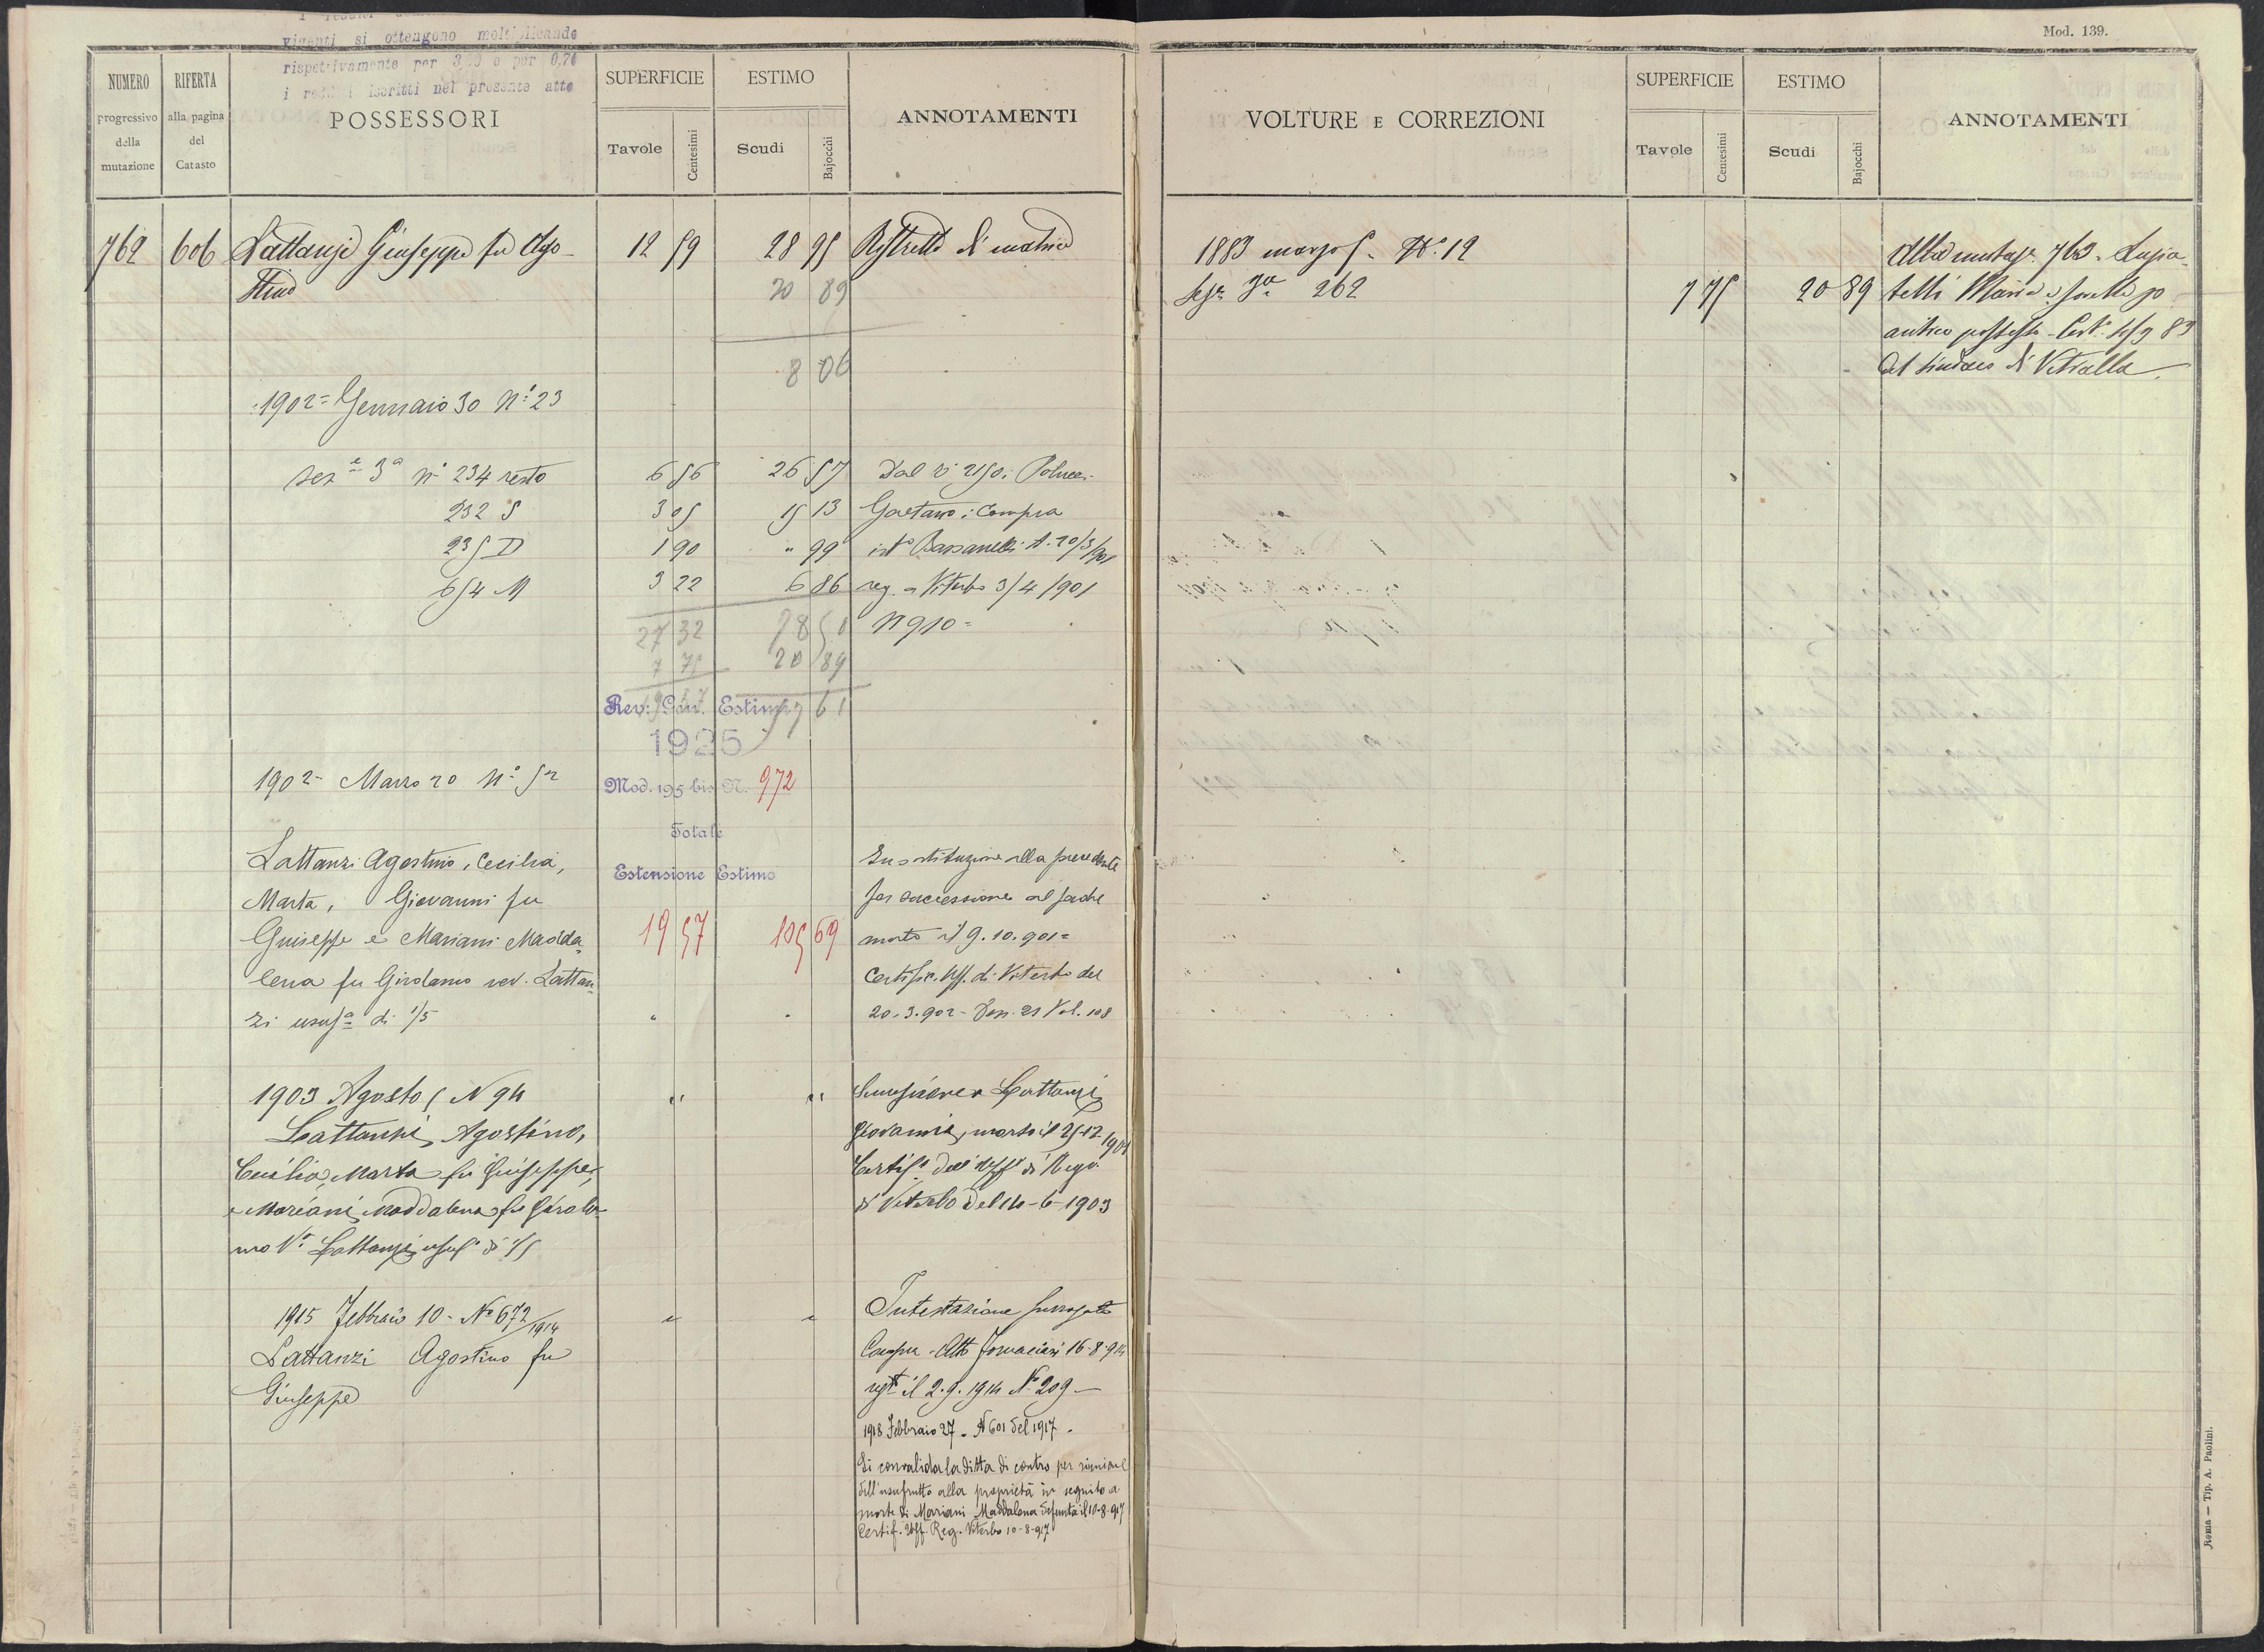 vigenti si ottengono moltiplicando
rispettivamente per 3,50 e per 0,70
i redditi iscritti nel presente atto
Mod. 139.
NUMERO progressivo della mutazione
RIFERTA alla pagina del Catasto
POSSESSORI
SUPERFICIE
Tavole Centesimi
ESTIMO
Scudi Bajocchi
ANNOTAMENTI
VOLTURE E CORREZIONI
SUPERFICIE
Tavole Centesimi
ESTIMO
Scudi Bajocchi
ANNOTAMENTI
762 606 Lattanzi Giuseppe fu Ago- 12 59 28 95 Ristretto di matrice
stino 20 89
8 06
1902 = Gennaio 30 N.º 23
sez.e 3a n.º 234 resto 6 56 26 57 Dal n.
232 S 3 05 15 13 Gaetano: Compra
235 D 1 90 " 99 Bassanelli 20/3/901
654 M 3 22 6 86 reg. a Viterbo 3/4/901
27 32 78 50 N 910 =
7 75 20 89
19 57 57 61
Rev: Gen. Estimi
1925
1902 - Marzo 20 N.º 52
Mod. 195 bis N. 972
Totale
Estensione Estimo
19 57 105 69
Lattanzi Agostino, Cecilia,
Marta, Giovanni fu
Giuseppe e Mariani Madda=
lena fu Girolamo ved. Lattan=
zi usuf.a di 1/5 " "
In sostituzione alla precedente
per successione al padre
morto il 9.10.901 =
Certific. Uff. di Viterbo del
20.3.902 - Den. 21 Vol. 108
1903 Agosto 5 N 94 " "
Lattanzi Agostino,
Cecilia, Marta fu Giuseppe,
e Mariani Maddalena fu Girola=
mo V.a Lattanzi usuf.a di 1/5
Successione a Lattanzi
Giovanni, morto il 25-12-1901
Certif.o dell'Uff.o di Reg.o
di Viterbo del 14-6-1903
1915 Febbraio 10 - N.º 672/1914 " "
Lattanzi Agostino fu
Giuseppe
Intestazione surrogata
Compra - Atto Fornaciari 16-8-914
regt.o il 2.9.1914 N.º 209 -
1918 Febbraio 27 - N 601 del 1917 -
Si convalida la ditta di contro per riunione
dell'usufrutto alla proprietà in seguito a
morte di Mariani Maddalena defunta il 10-8-917
Certif. Uff. Reg. Viterbo 10-8-917
1883 marzo 5 - N.º 12
Sez.e 3a 262 7 75 20 89
Alla mutaz. 763 -
telli Maria e sorelle
antico possesso - Cert.º 
del Sindaco di Vetralla
Roma — Tip. A. Paolini.